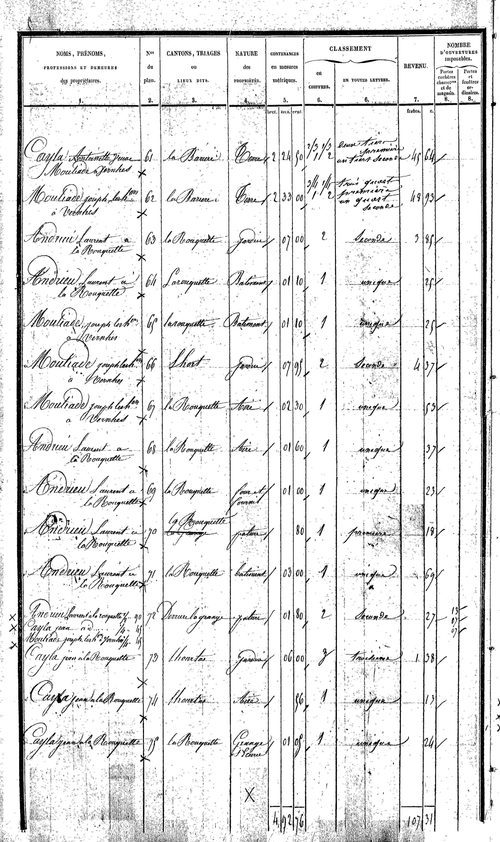 NOMS, PRÉNOMS,
PROFESSIONS ET DEMEURES
des propriétaires.
1.
Nos
du
plan.
2.
CANTONS, TRIAGES
ou
LIEUX DITS.
3.
NATURE
des
propriétés.
4.
CONTENANCES
en mesures
métriques.
5.
CLASSEMENT
en
CHIFFRES.
6.
EN TOUTES LETTRES.
6.
REVENU.
7.
NOMBRE
D'OUVERTURES
imposables.
Portes
cochères
et de
magasin.
8.
Portes
et
fenêtres
ordinaires.
8.
hect. ares cent.
francs. c.
Cayla Antoinette 61 la Barrière Terre 2 24 50 2/3 1/3 1 2 deux tiers première un tiers seconde 45 64
Mouliade à Vernhes
Mouliade joseph 62 la Barrière Terre 2 33 00 3/4 1/4 1 2 trois quart première un quart seconde 48 93
à Vernhes
Andrieu Laurent à 63 la Rouquette jardin 07 00 2 seconde 3 85
la Rouquette
Andrieu Laurent à 64 Larouquette Batiment 01 10 1 unique 25
la Rouquette
Mouliade joseph 65 larouquette Batiment 01 10 1 unique 25
à Vernhes
Mouliade joseph 66 Lhort jardin 07 95 2 seconde 4 37
à Vernhes
Mouliade joseph 67 la Rouquette Aire 02 30 1 unique 53
à Vernhes
Andrieu Laurent à 68 la Rouquette Aire 01 60 1 unique 37
la Rouquette
Andrieu Laurent à 69 la Rouquette four et 01 00 1 unique 23
la Rouquette
Andrieu Laurent à 70 la Rouquette pature 80 1 première 18
la Rouquette
Andrieu Laurent à 71 la Rouquette batiment 03 00 1 unique 69
la Rouquette
Andrieu Laurent à la rouquette 72 Derriere la grange pature 01 80 2 seconde 27
Cayla jean
Mouliade joseph
Cayla jean à la Rouquette 73 jardin 06 00 3 troisieme 1 38
Cayla jean à la Rouquette 74 Aire 56 1 unique 13
Cayla jean à la Rouquette 75 la Rouquette Grange 01 05 1 unique 24
4 92 76
107 31